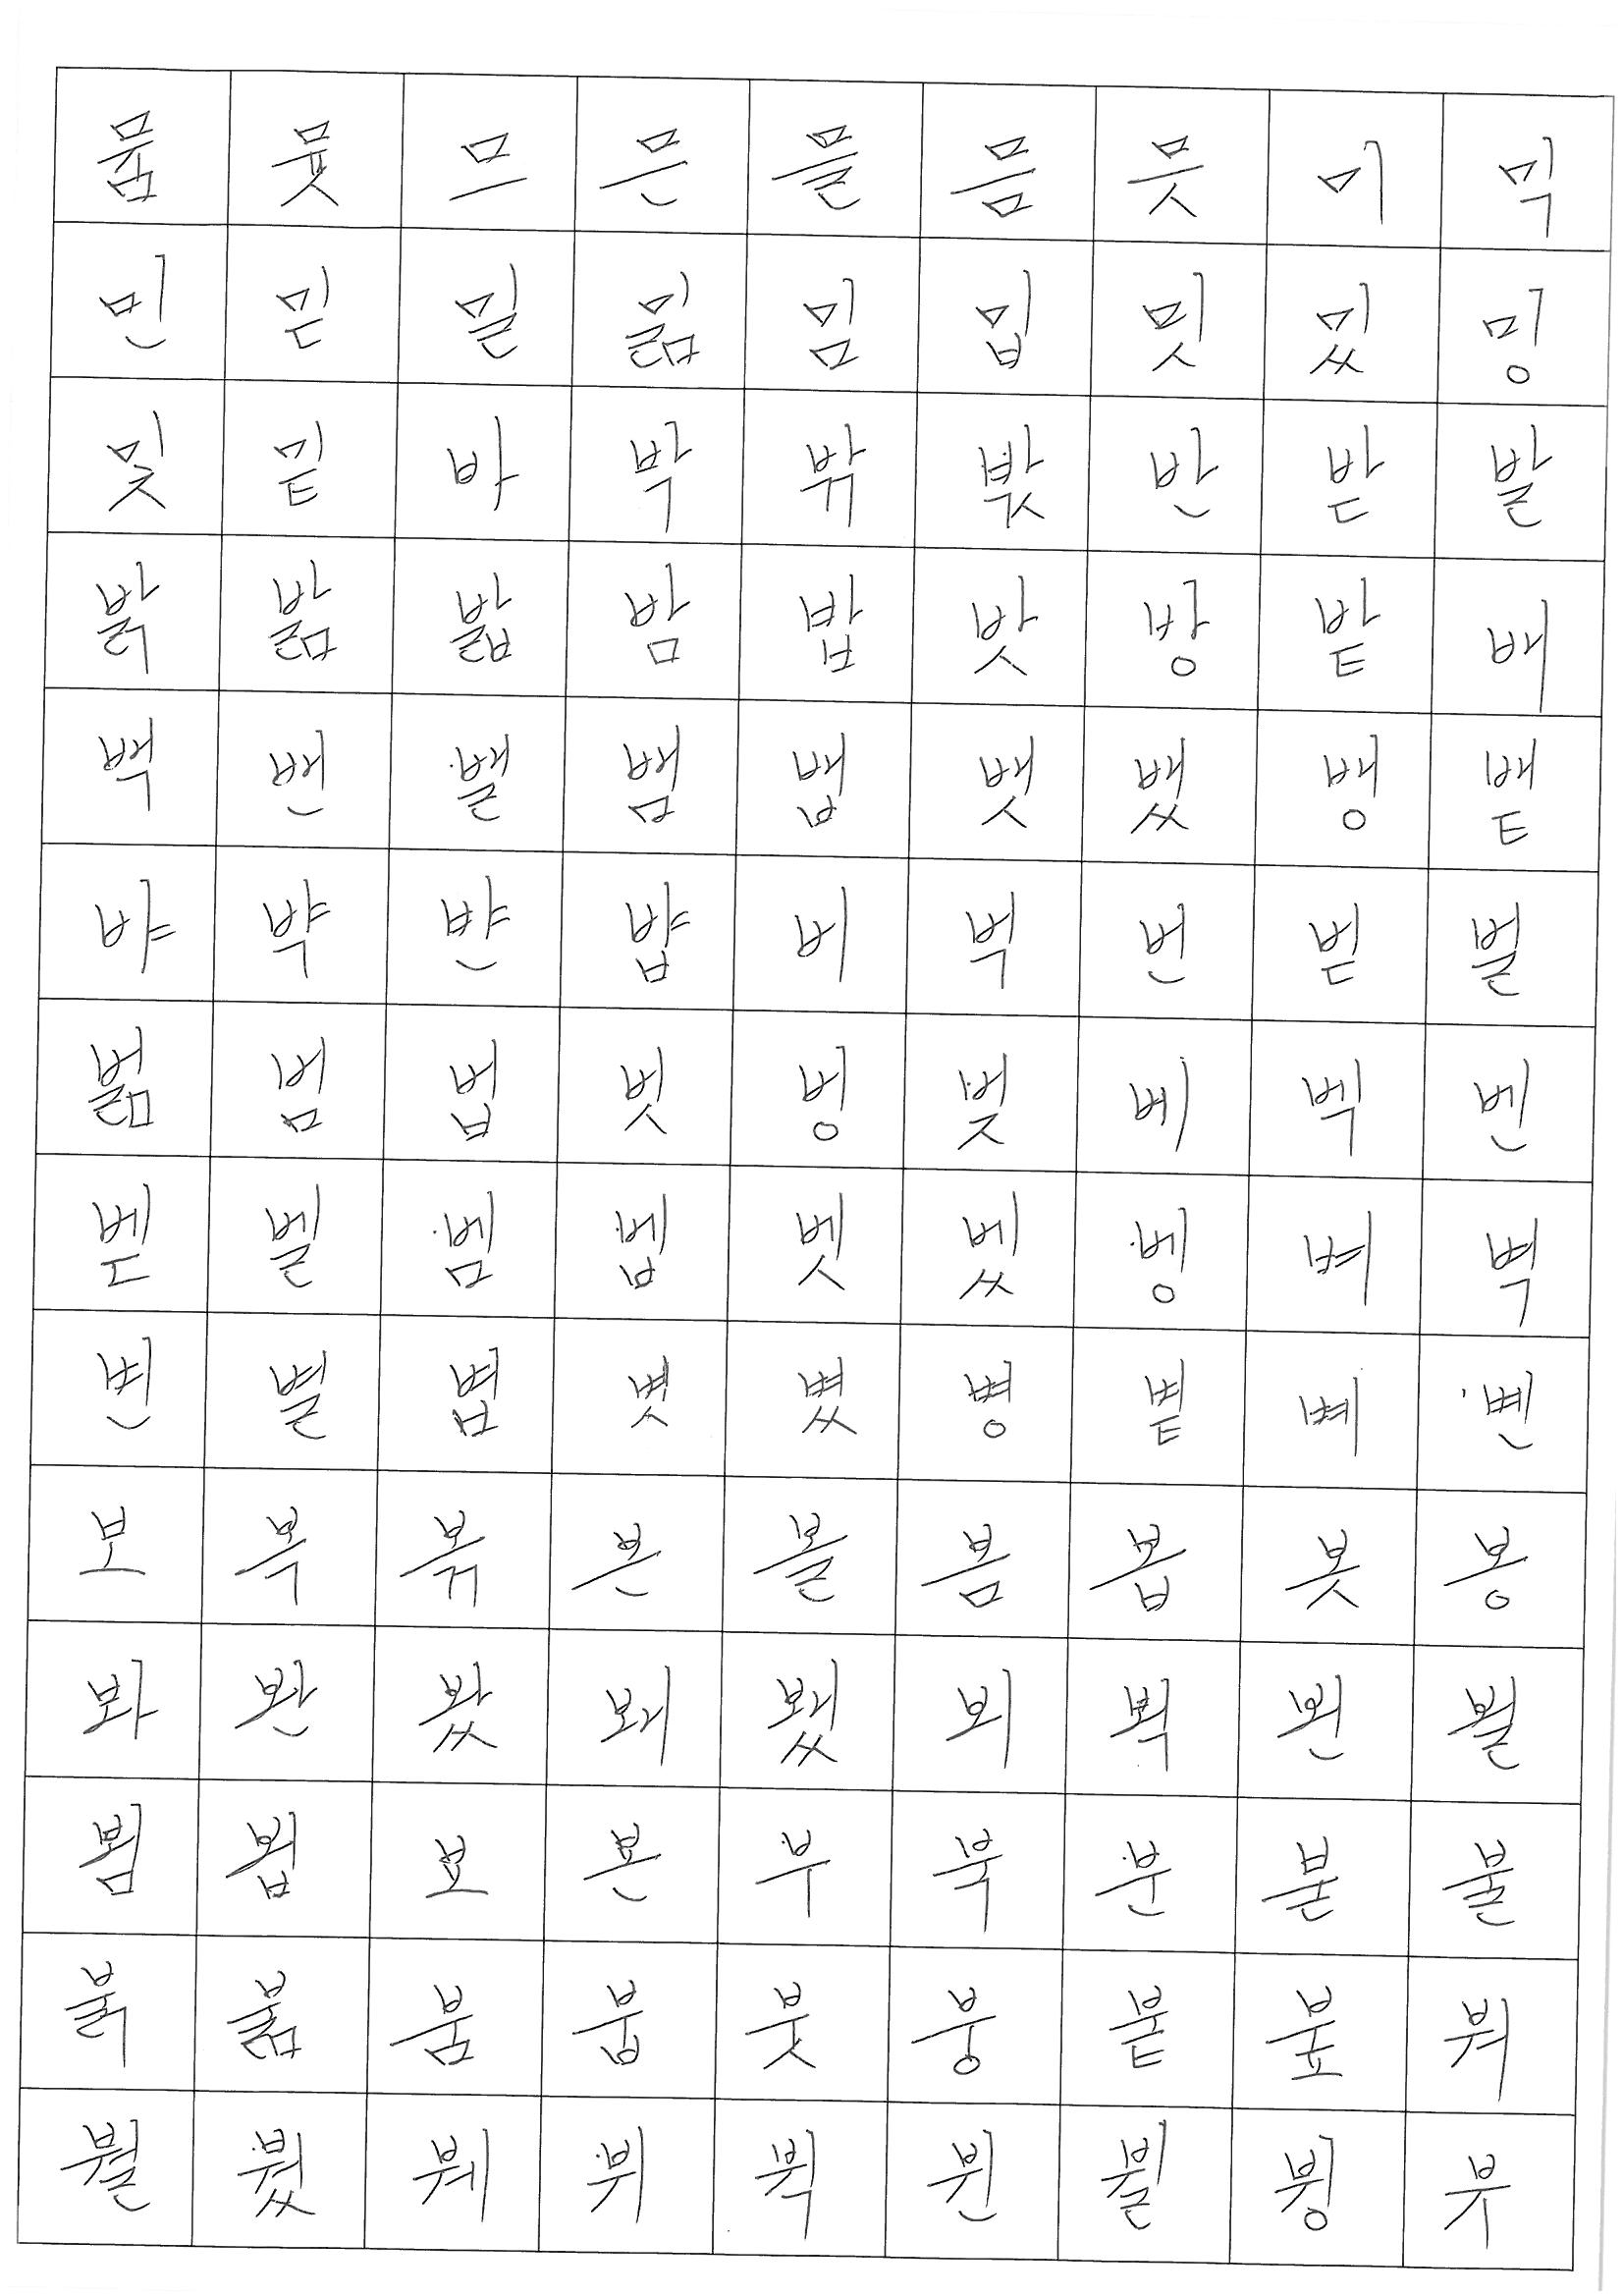 뮴 뮷 므 믄 믈 믐 믓 미 믹
민 믿 밀 밂 밈 밉 밋 밌 밍
및 밑 바 박 밖 밗 반 받 발
밝 밞 밟 밤 밥 밧 방 밭 배
백 밴 밸 뱀 뱁 뱃 뱄 뱅 뱉
뱌 뱍 뱐 뱝 버 벅 번 벋 벌
벎 범 법 벗 벙 벚 베 벡 벤
벧 벨 벰 벱 벳 벴 벵 벼 벽
변 별 볍 볏 볐 병 볕 볘 볜
보 복 볶 본 볼 봄 봅 봇 봉
봐 봔 봤 봬 뵀 뵈 뵉 뵌 뵐
뵘 뵙 뵤 뵨 부 북 분 붇 불
붉 붊 붐 붑 붓 붕 붙 붚 붜
붤 붰 붸 뷔 뷕 뷘 뷜 뷩 뷰